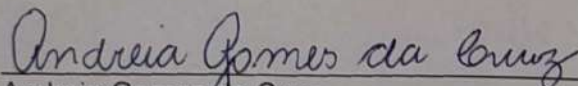 Andreia Gomes da Cruz